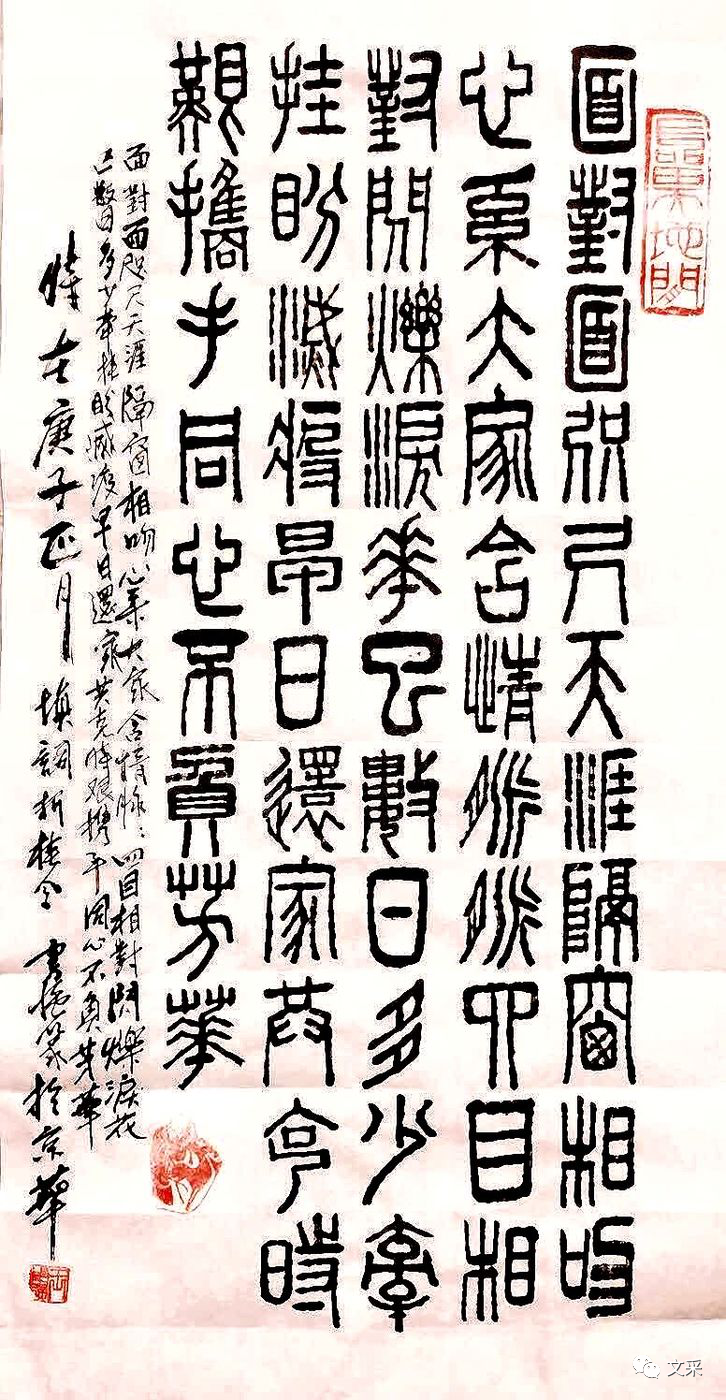 面對面咫尺天涯隔窗相吻
心系大家含情脉脉四目相
對閃爍淚花已數日多少牽
挂盼滅疫早日還家共克時
艱攜手同心不負芳華
面對面咫尺天涯隔窗相吻心系大家含情脉〻四目相對閃爍淚花
已數日多少牽挂盼滅疫早日還家共克時艱攜手同心不負芳華
時在庚子正月填詞折桂令 篆於京華
文采